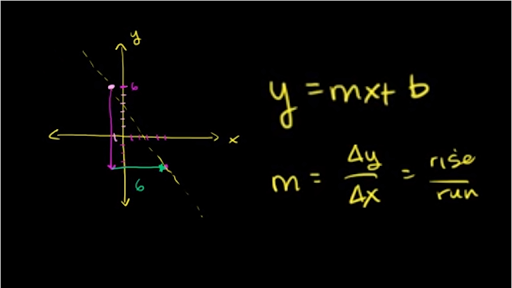 y
6
x
6
y = mx + b
m = Δy/Δx = rise/run